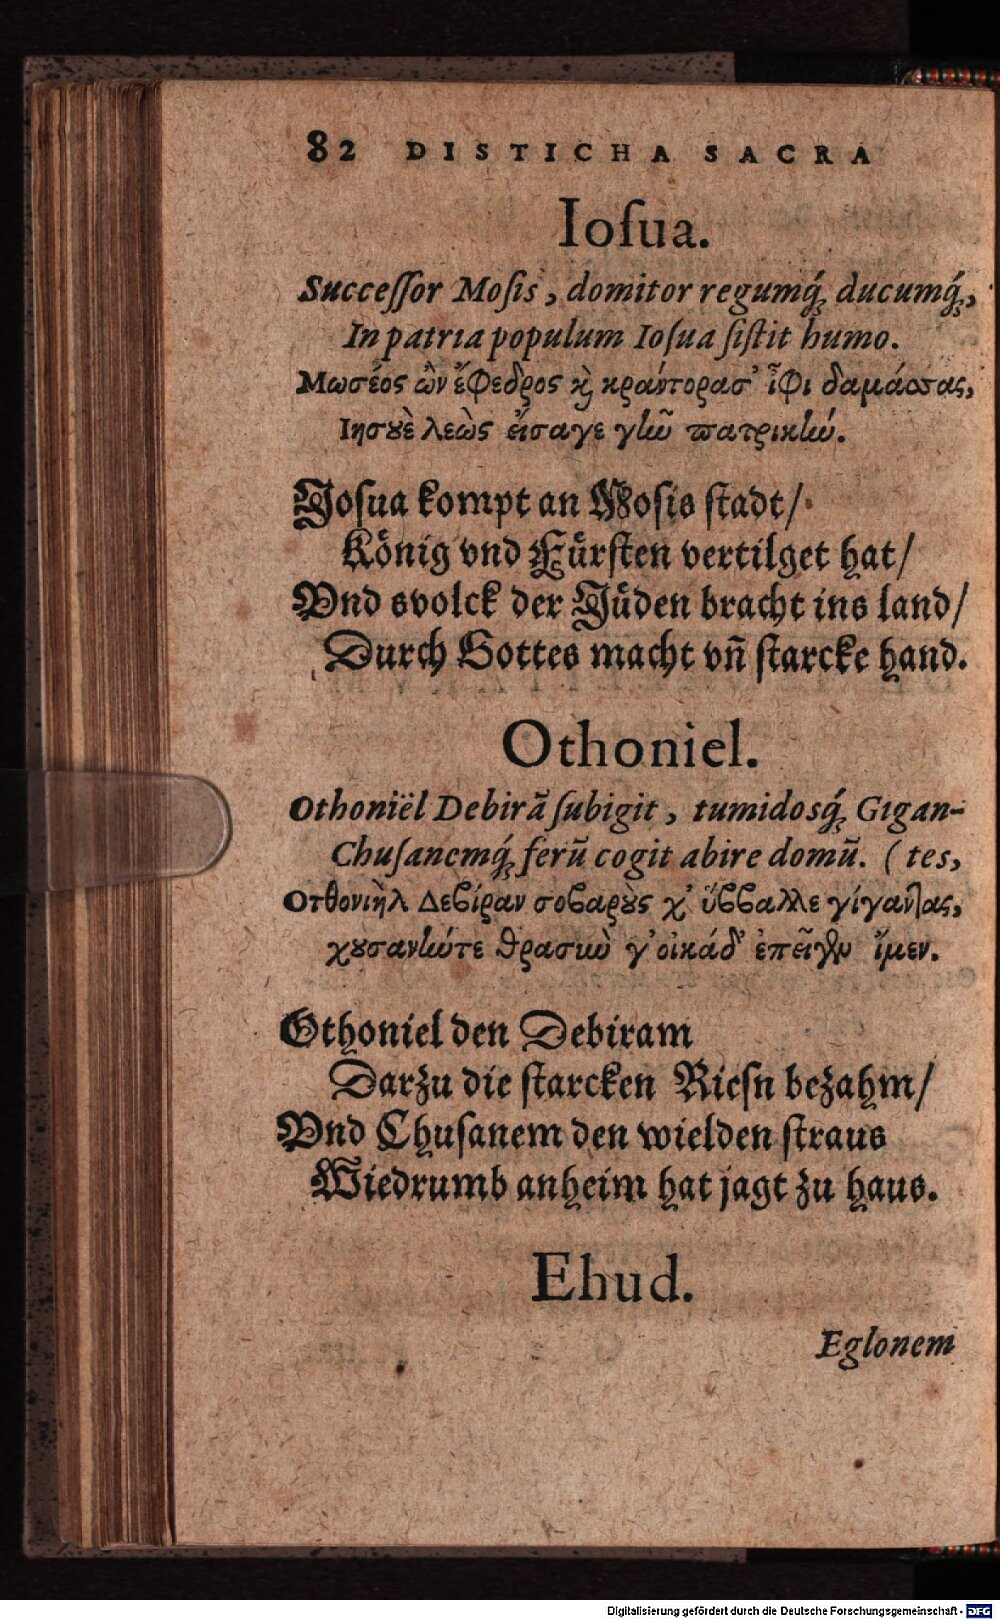 82 DISTICHA SACRA
Ioſua.
Succeſſor Moſis, domitor regumq́ꝫ ducumq́ꝫ,
In patria populum Ioſua ſiſtit humo.
Μωσέος ὢν ἔφεδρος κὴ κράντορασ' ἶφι δαμάσσας,
Ιησȣὲ λεὼς εἴσαγε γῆν πατρικήν.
Joſua kompt an Moſis ſtadt/
Koͤnig vnd Fuͤrſten vertilget hat/
Vnd svolck der Juͤden bracht ins land/
Durch Gottes macht vñ ſtarcke hand.
Othoniel.
Othoniël Debirã ſubigit, tumidosq́ꝫ Gigan-
Chuſanemq́ꝫ ferũ cogit abire domũ. (tes,
Οτθονιὴλ Δεβίραν σοβαρȣ̀ς χ' ὕββαλλε γίγανтας,
χȣσανήντε θρασιὼ γ' οἰκάδ' ἐπεῖγεν ἴμεν.
Othoniel den Debiram
Darzu die ſtarcken Rieſn bezahm/
Vnd Chuſanem den wielden ſtraus
Wiedrumb anheim hat jagt zu haus.
Ehud.
Eglonem
Digitalisierung gefördert durch die Deutsche Forschungsgemeinschaft - DFG